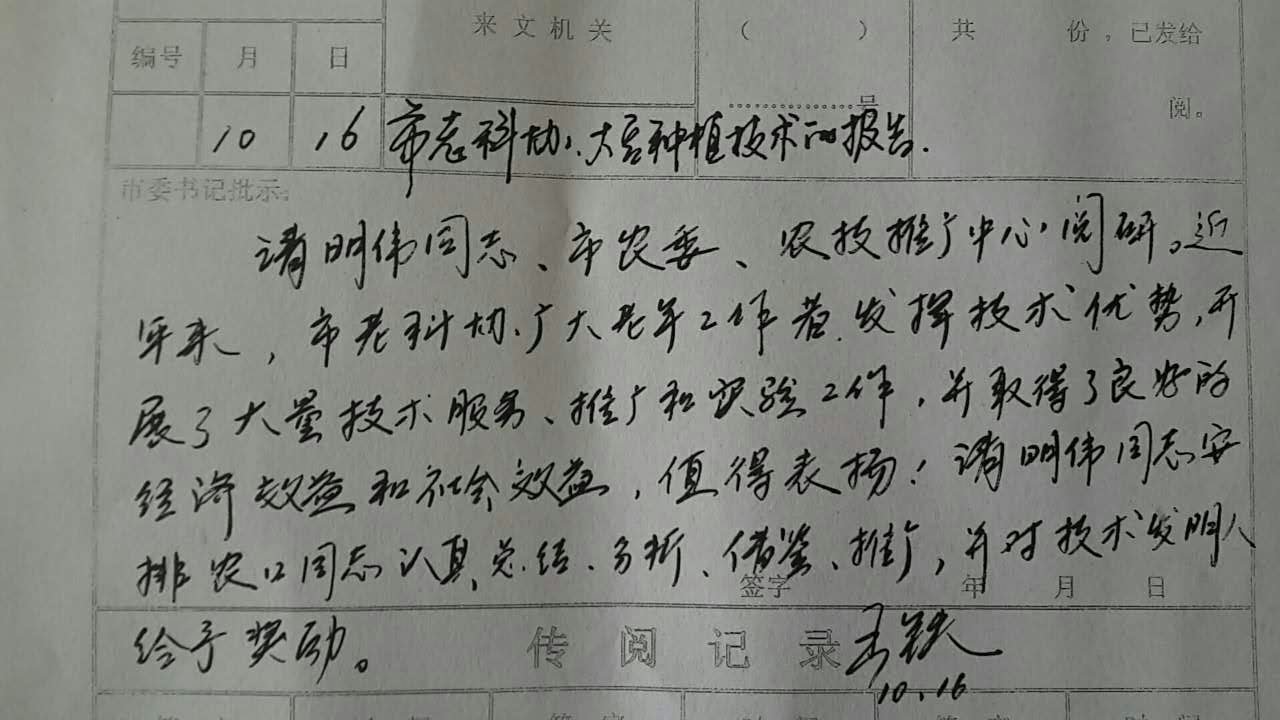 来文机关 （ ） 共 份，已发给
编号 月 日
号 阅。
10 16 市老科协、大蒜种植技术的报告.
市委书记批示：
请明伟同志、市农委、农技推广中心阅研。近
年来，市老科协、广大老年工作者发挥技术优势，开
展了大量技术服务、推广和实验工作，并取得了良好的
经济效益和社会效益，值得表扬！请明伟同志安
排农口同志认真总结、分析、借鉴、推广，并对技术发明人
签字 年 月 日
给予奖励。
传阅记录
王铁
10.16